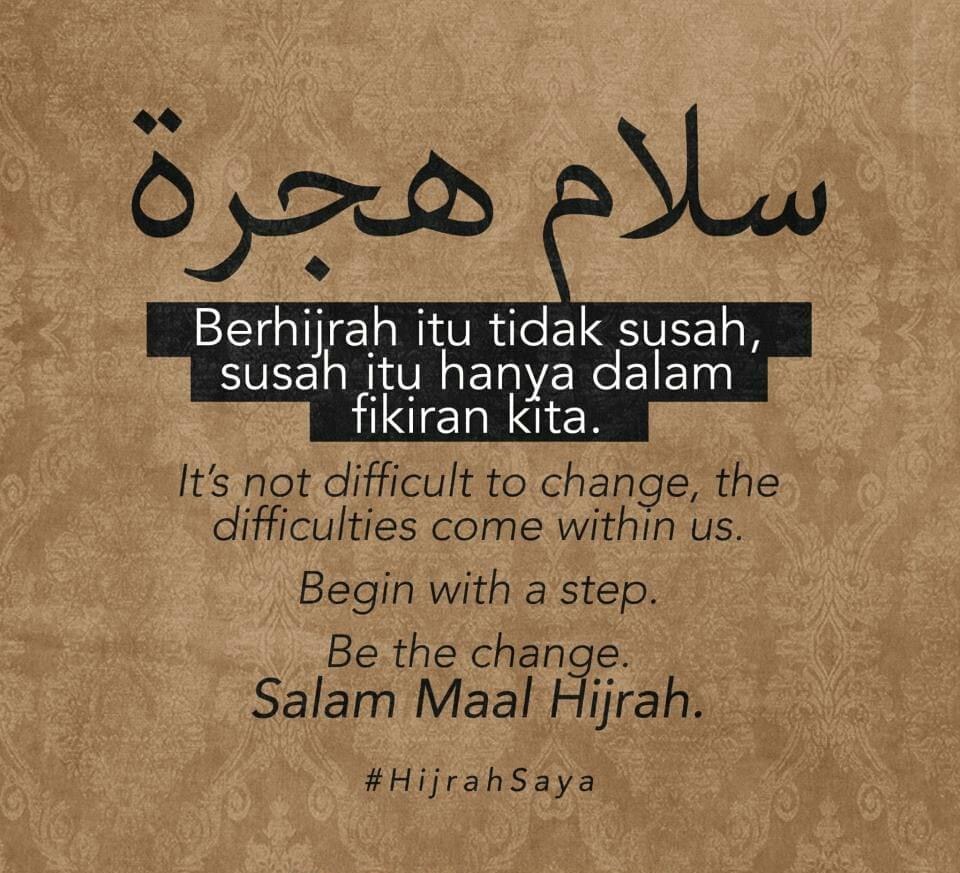 سلام هجرة
Berhijrah itu tidak susah,
susah itu hanya dalam
fikiran kita.
It's not difficult to change, the
difficulties come within us.
Begin with a step.
Be the change.
Salam Maal Hijrah.
#HijrahSaya